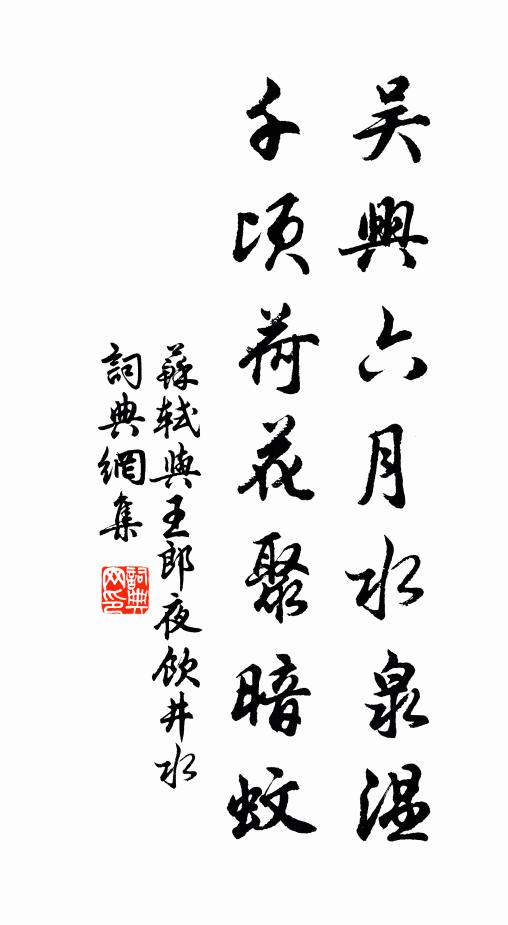 吴興六月水泉温
千頃荷花聚暗蚊
蘇軾與王郎夜飲井水
詞典網集
詞典网印